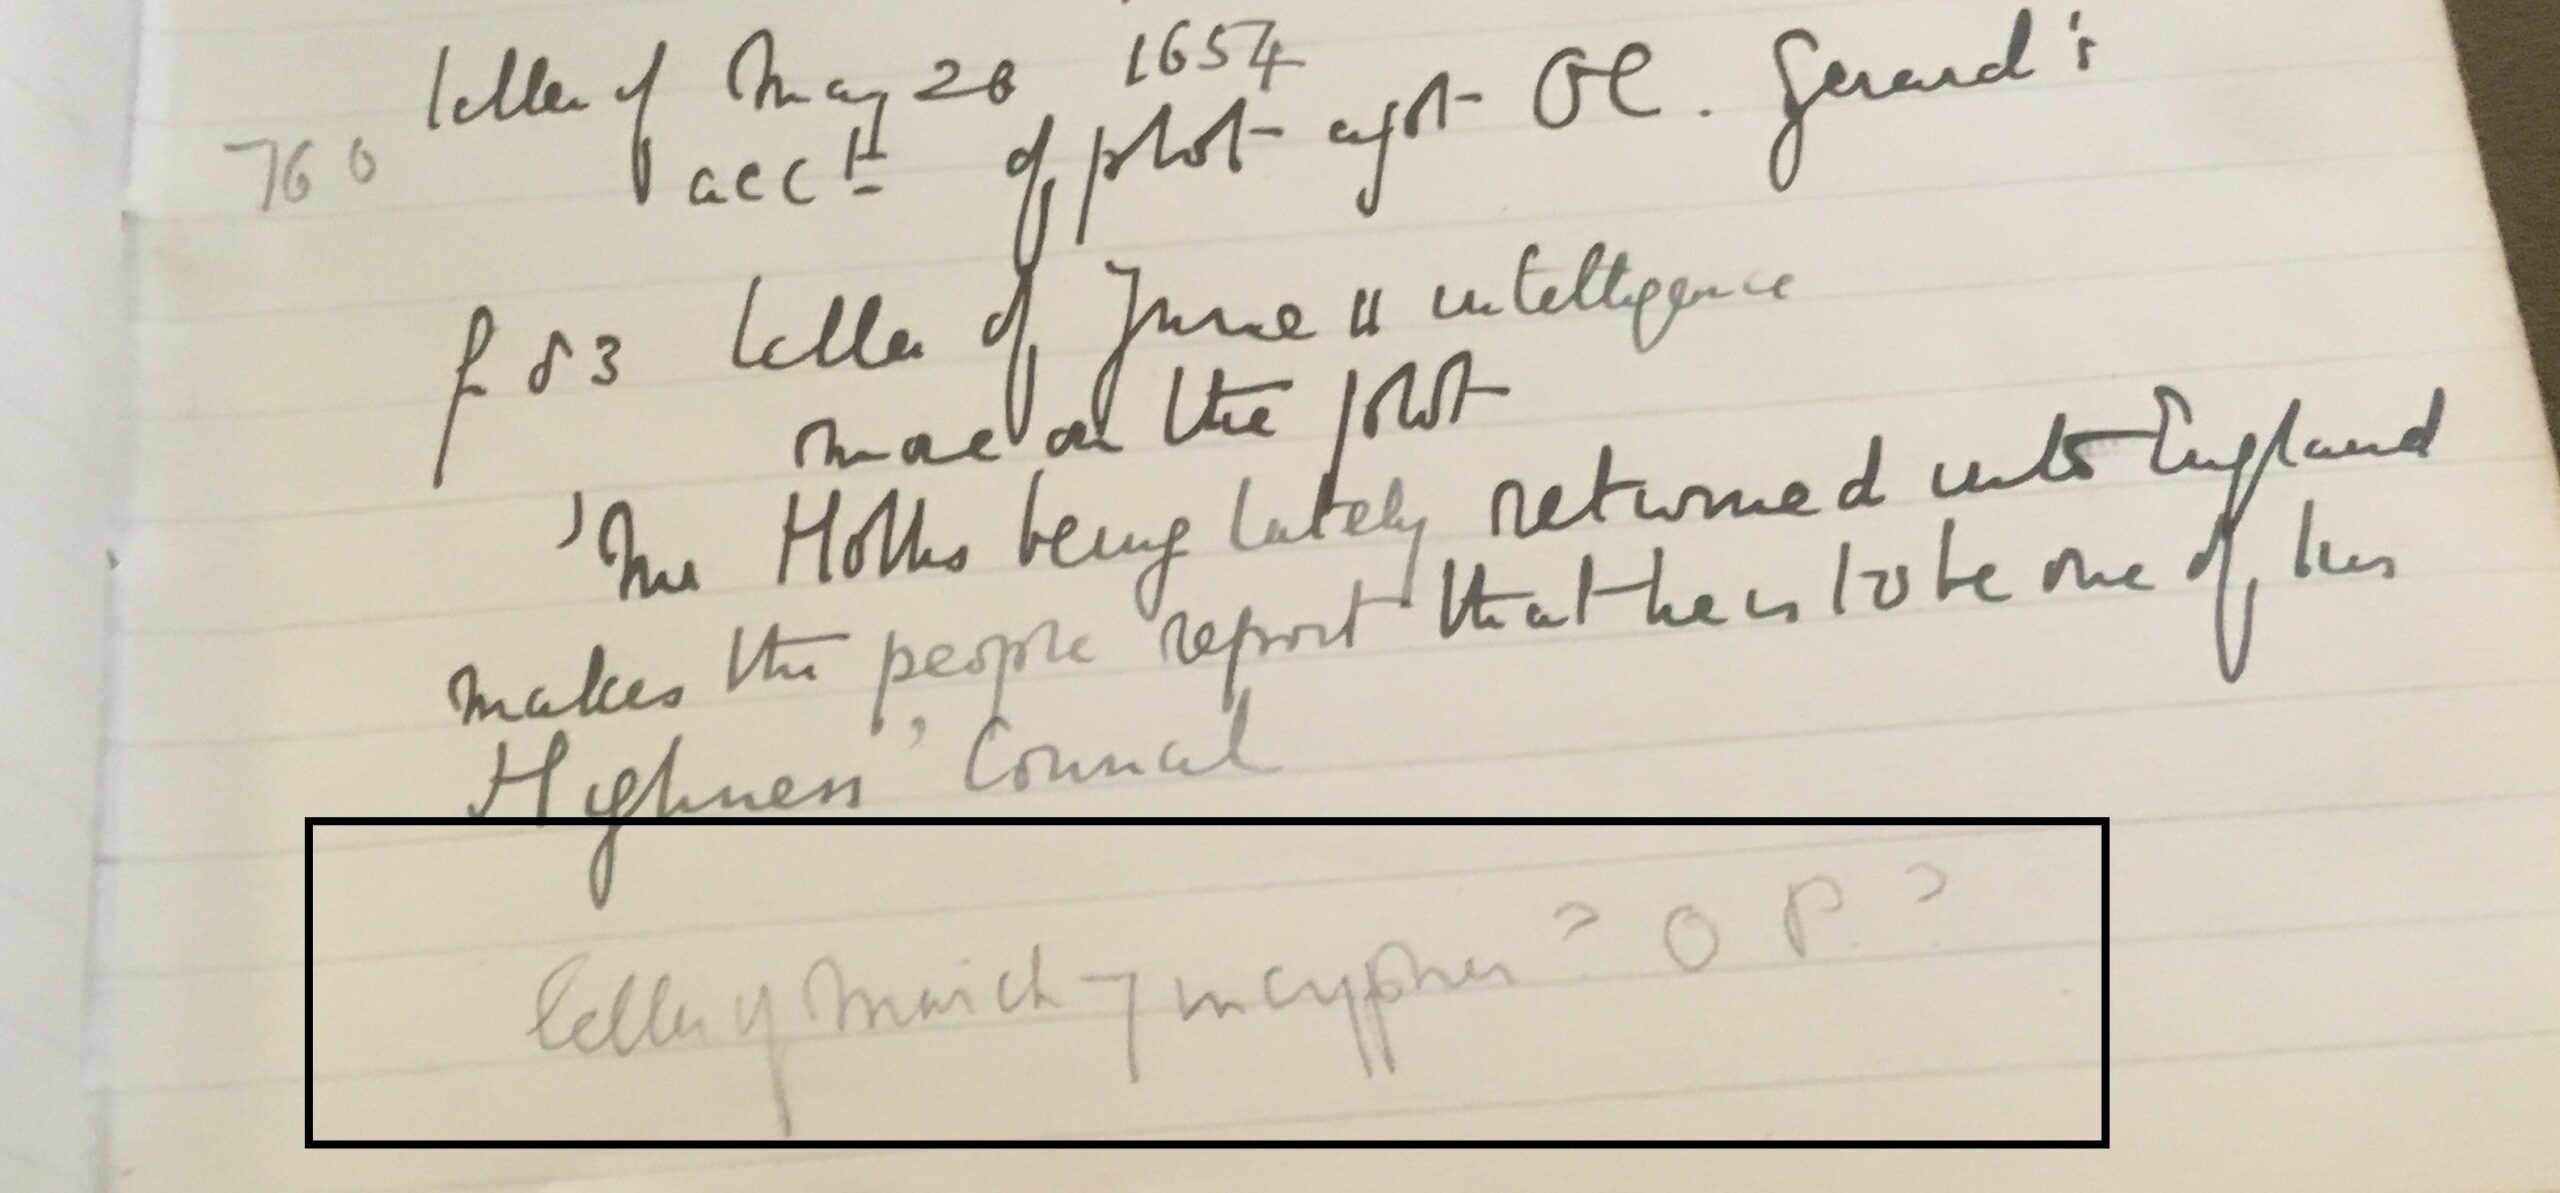 letter of May 28 1654
760 acct of plot agst OC. Gerard's
f 83 letter of June 11 intelligence
more on the plot
'Mr Hollis being lately returned into England
makes the people report that he is to be one of his
Highness' Council
letter of March 7 in cypher ? O P ?